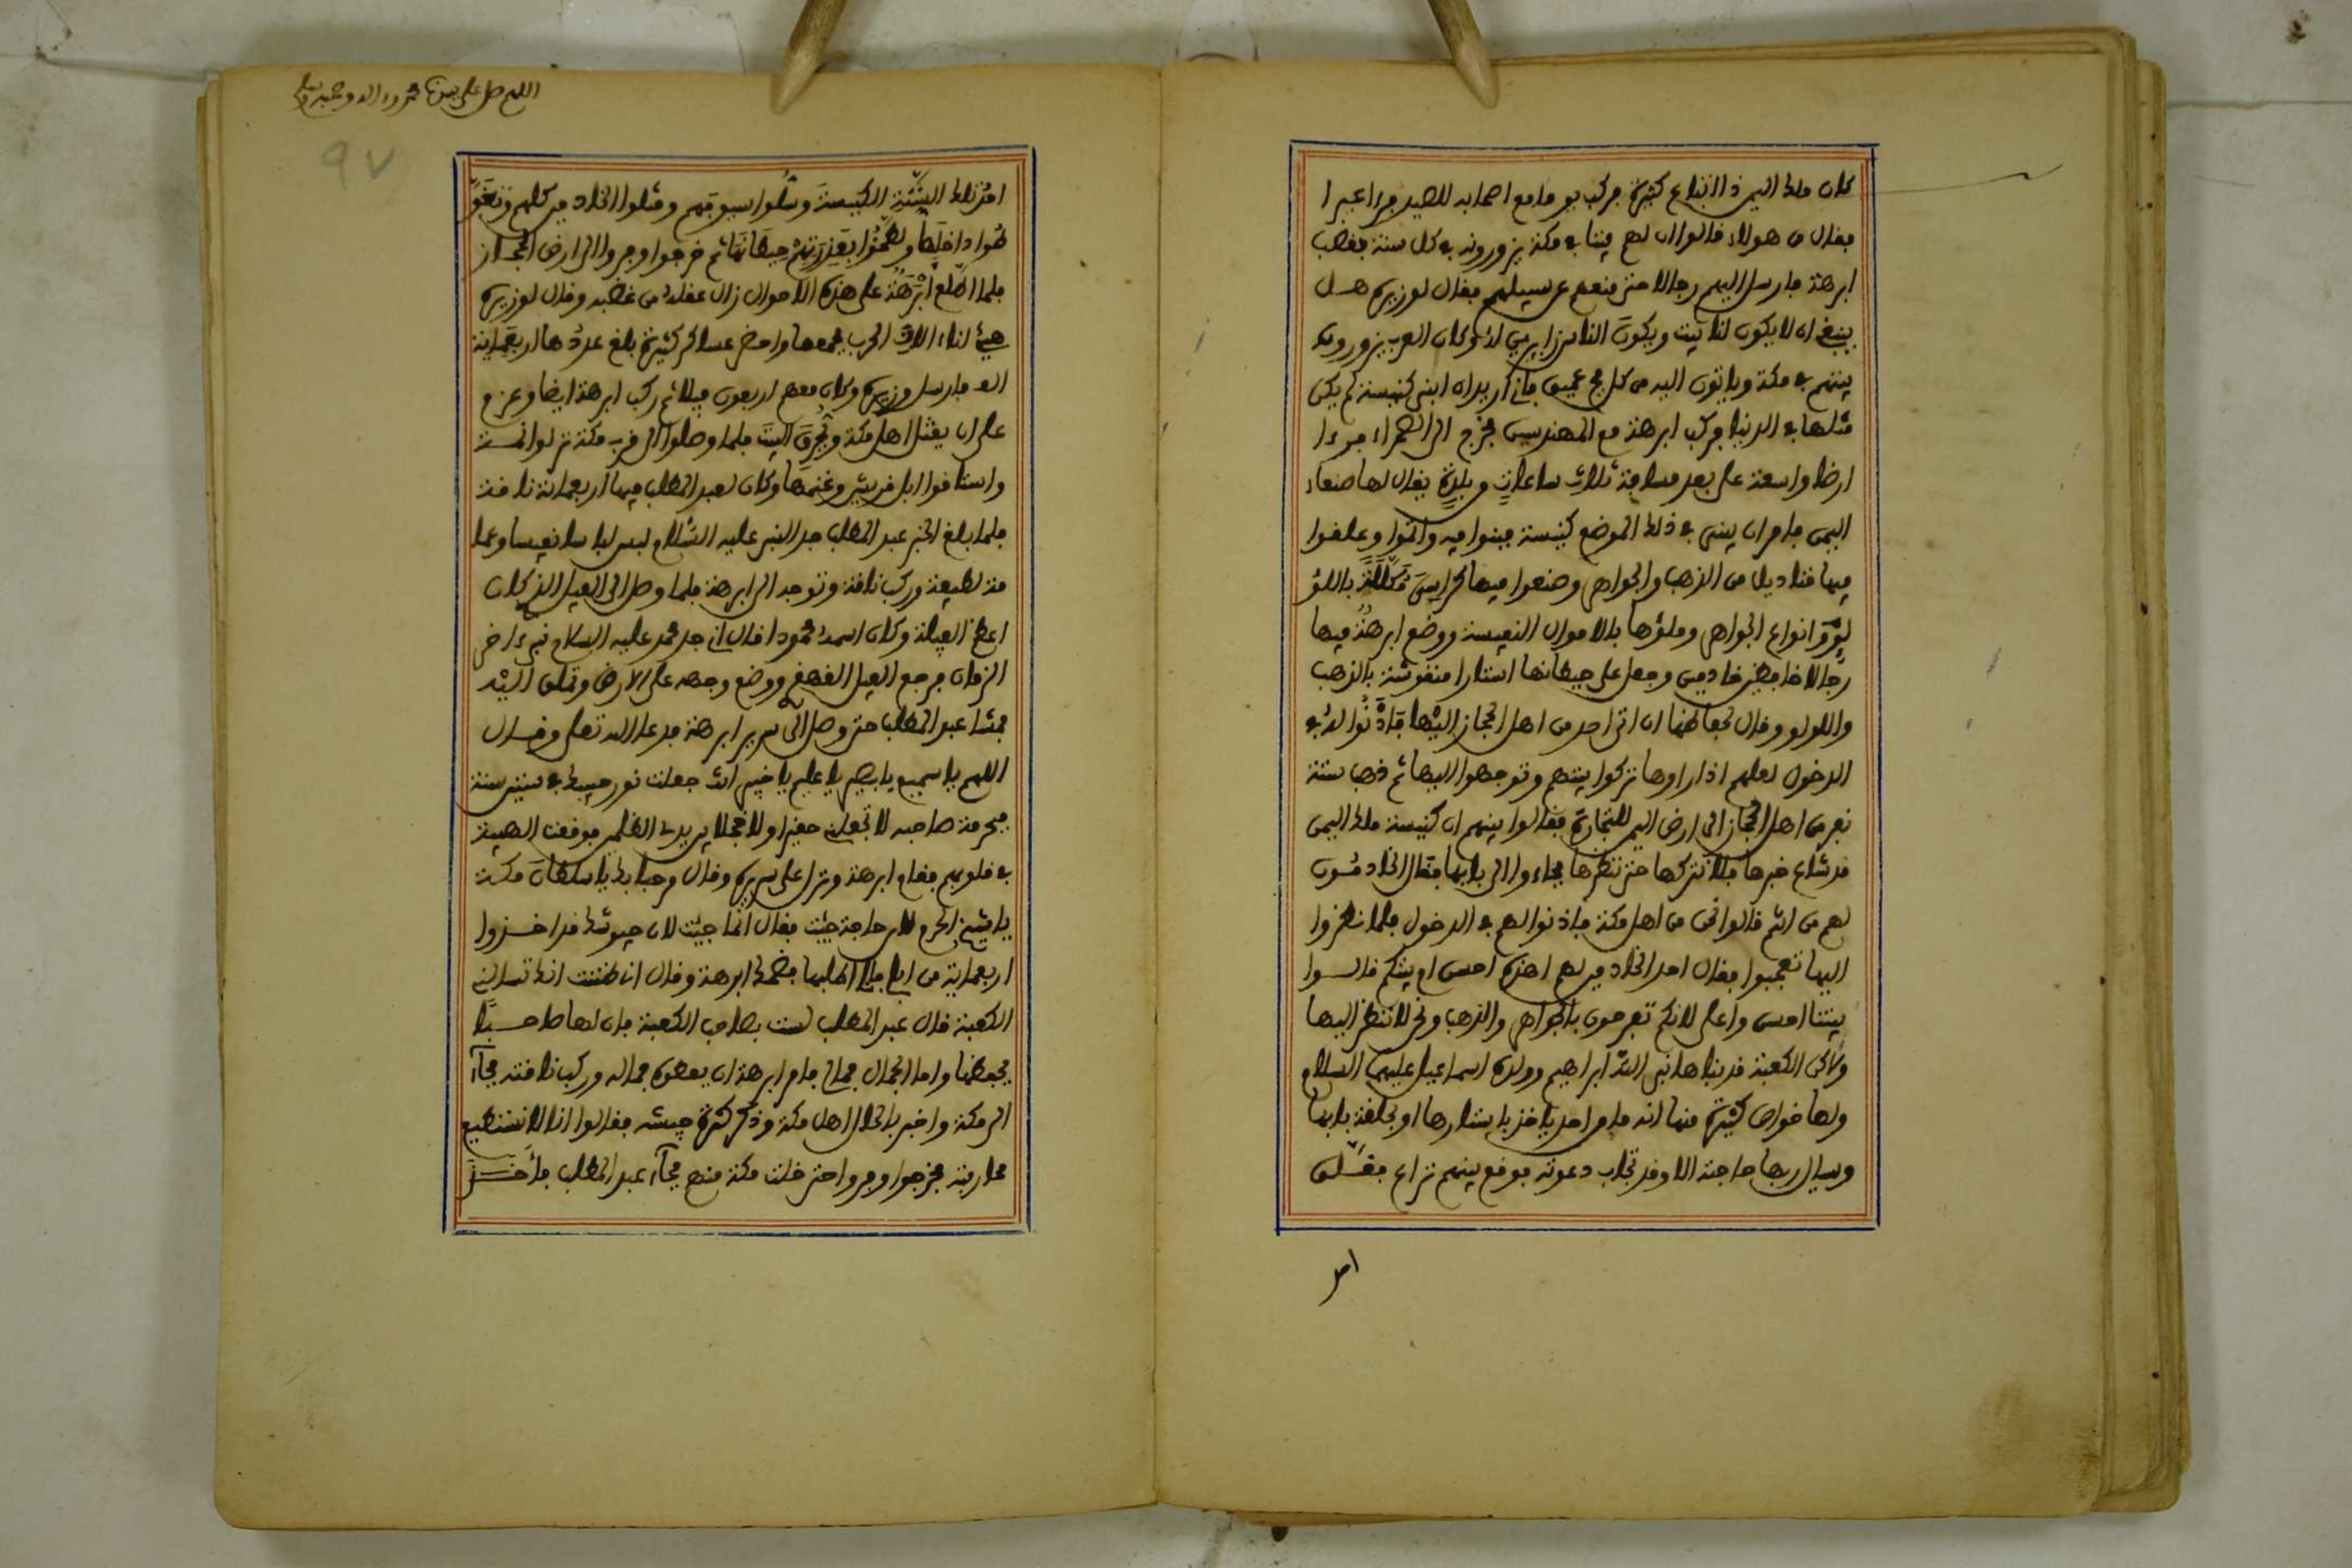 كان ملك اليمن ذا اتباع كثيرة فركب يوما مع اصحابه للصيد فرءا عيرا
فقال من هولاء قالوا ان لهم بيتا في مكة يزورونه في كل سنة فغضب
ابرهة فارسل اليهم رجالا حتى منعهم عن سبيلهم فقال لوزيره هل
ينبغي ان لا يكون لنا بيت ويكون الناس زايرين له وكان العرب يزورون
بيتهم في مكة وياتون اليه من كل فج عميق فاني اريد ان ابني كنيسة لم يكن
مثلها في الدنيا فركب ابرهة مع المهندسين فخرج الى الصحراء فرءا
ارضا واسعة على بعد مسافة ثلاث ساعات من بلدة يقال لها صنعاء
اليمن فامر ان يبنى في ذلك الموضع كنيسة فبنوا فيه واتموا وعلقوا
فيها قناديل من الذهب والجواهر وصنعوا فيها كراسي مكللة باللؤ
لؤ وانواع الجواهر وملؤها بالاموال النفيسة ووضع ابرهة فيها
رجالا حافظين خادمين وجعل على حيطانها استارا منقوشة بالذهب
واللولو وقال لحفاظها ان اتى احد من اهل الحجاز اليها فاذنوا له في
الدخول لعلهم اذا راوها تركوا بيتهم وتوجهوا اليها ثم ذهب ستة
نفر من اهل الحجاز الى ارض اليمن للتجارة فقالوا بينهم ان كنيسة ملك اليمن
قد شاع خبرها فلا نتركها حتى ننظرها فجاءوا الى بابها فقال الخادمون
لهم من انتم قالوا نحن من اهل مكة فاذنوا لهم في الدخول فلما نظروا
اليها تعجبوا فقال احد الخادمين لهم اهذه احسن ام بيتكم قالوا
بيتنا احسن واعلى لانكم تفرحون بالجواهر والذهب ونحن لا ننظر اليها
ولاكن الكعبة قد بناها نبي الله ابراهيم وولده اسماعيل عليهما السلام
ولها خواص كثيرة منها انه ما من احد ياخذ باستارها او بحلقة بابها
ويسال ربها حاجته الا وقد تجاب دعوته فوقع بينهم نزاع فقتلن
امر
اللهم صل على سيدنا محمد وءاله وصحبه وسلم
٩٧
امر تلك الستة الكنيسة وسلوا سيوفهم وقتلوا الخادمين كلهم وتغو
طوا داخلها ولطخوا بعذرتهم حيطانها ثم خرجوا وفروا الى ارض الحجاز
فلما اطلع ابرهة على هذه الاحوال زال عقله من غضبه وقال لوزيره
هيئ لنا ءالات الحرب فجمعها واحضر عساكر كثيرة بلغ عددها اربعماية
الف فارسل وزيره وكان معهم اربعون فيلا ثم ركب ابرهة ايضا وعزم
على ان يقتل اهل مكة ويحرق البيت فلما وصلوا الى قرب مكة نزلوا ثمة
واستاقوا ابل قريش وغنمها وكان لعبد المطلب فيها اربعماية ناقة
فلما بلغ الخبر عبد المطلب جد النبي عليه السلام لبس لباسا نفيسا وعما
مة لطيفة وركب ناقة وتوجه الى ابرهة فلما وصل الى الفيل الذي كان
اعظم الفيلة وكان اسمه محمودا قال اني جد محمد عليه السلام نبي ءاخر
الزمان فرجع الفيل القهقرى ووضع وجهه على الارض وتملق اليه
فمشا عبد المطلب حتى وصل الى سرير ابرهة فدعا الله تعلى وقال
اللهم يا سميع يا بصير يا عليم يا خبير انت جعلت نور حبيبك في
فبحرمة صاحبه لا تجعلني حقيرا ولا خجلا بين يدي الظلمين فوقعت الهيبة
في قلوبهم فقام ابرهة ونزل على سريره وقال مرحبا بك يا سلطان مكة
يا شيخ الحرم لاي حاجة جيت فقال انما جيت لان جيوشك قد اخذوا
اربعماية من ابلي اطلبها فضحك ابرهة وقال اني ظننت انك تسالني
الكعبة قال عبد المطلب لست بصاحب الكعبة فان لها صاحبا
يحفظها واما الجمال جمالي فامر ابرهة ان يعطوه جماله وركب ناقته فجآء
الى مكة واخبر بالحال اهل مكة وذكر كثرة جيشه فقالوا انا لا نستطيع
محاربته فخرجوا وفروا حتى خلت مكة منهم فجآء عبد المطلب فاخذ